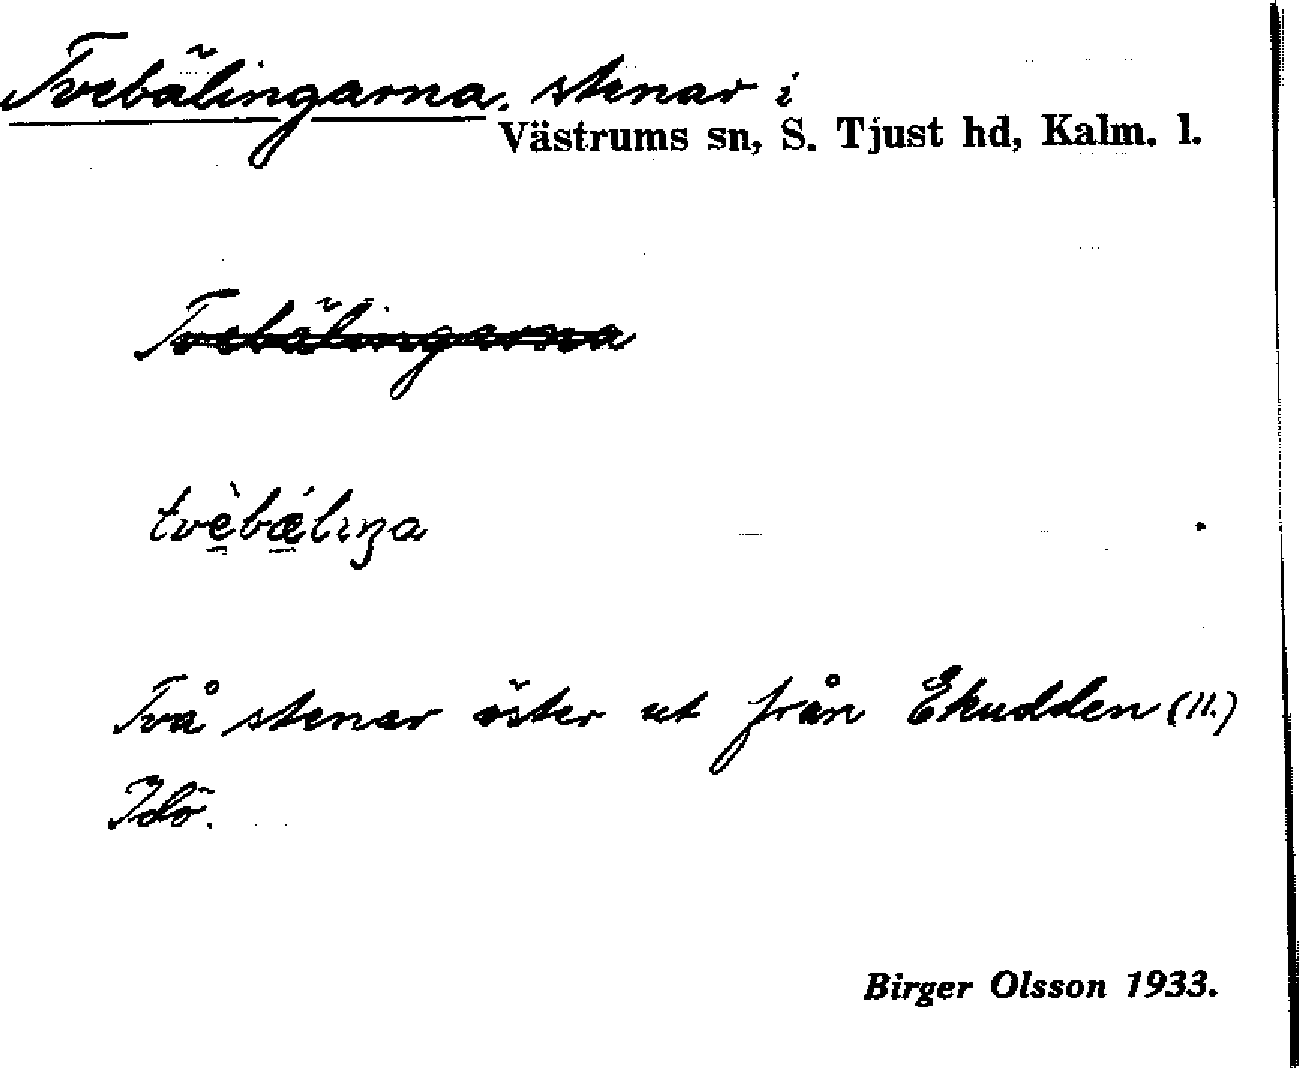 Tvebälingarna, stenar i
Västrums sn, S. Tjust hd, Kalm. l.
Tvebälingarna
tvèbǽlıŋa
Två stenar öster ut från Ekudden (11.)
Idö.
Birger Olsson 1933.